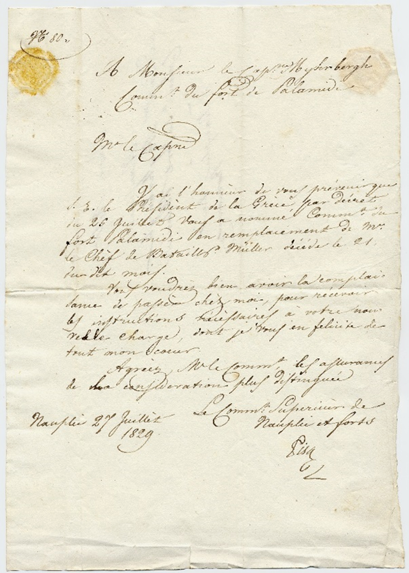 No 80.
A Monsieur le Capne Myhrbergh
Commt du fort de Palamide
Mr le Capne
J'ai l'honneur de vous prévenir que
S. E. le Président de la Grèce par décret
du 26 Juillet vous a nommé Commt du
fort Palamide en remplacement de Mr
le Chef de Bataillon Müller décédé le 21.
dudit mois.
Vous voudrez bien avoir la complai
sance de passer chez moi, pour recevoir
les instructions nécessaires a votre nou
velle charge, dont je vous en felicite de
tout mon coeur.
Agreez, Mr le Commt, les assurances
de ma consideration plus distinguée
Le Commt Superieur de
Nauplie et forts
Nauplie 27 Juillet
1829
Pisa